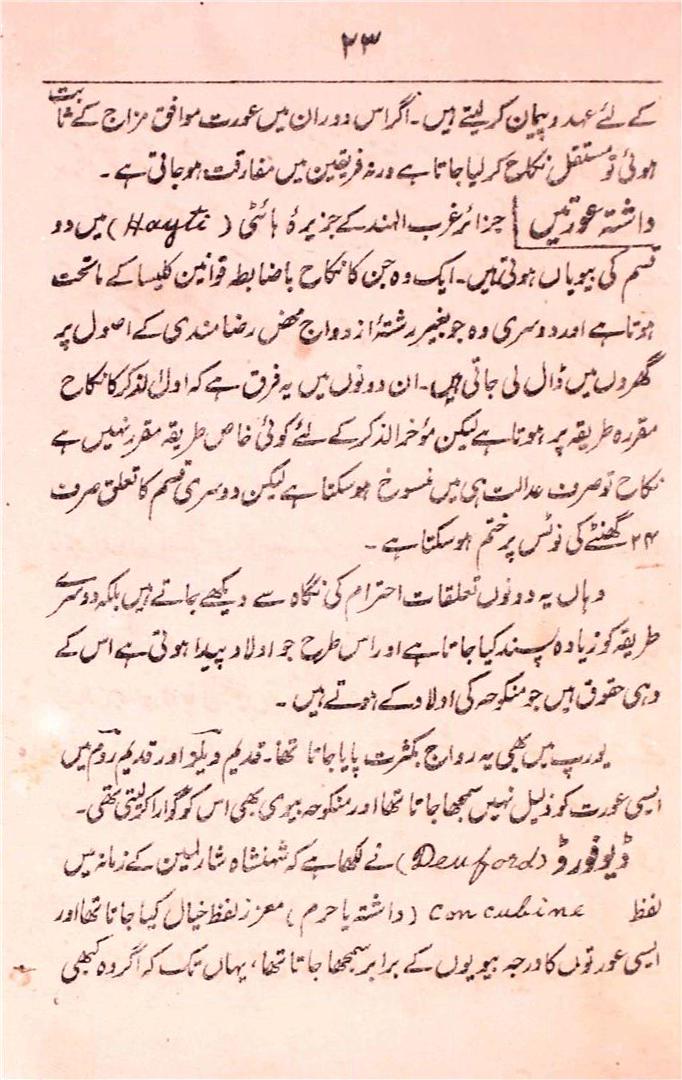 ۲۳
کے لئے عہد و پیمان کر لیتے ہیں۔ اگر اس دوران میں عورت موافق مزاج کے ثابت
ہوئی تو مستقل نکاح کر لیا جاتا ہے ورنہ فریقین میں مفارقت ہو جاتی ہے۔
داشتہ عورتیں جزائر غرب الہند کے جزیرۂ ہائٹی (Hayti) میں دو
قسم کی بیویاں ہوتی ہیں۔ ایک وہ جن کا نکاح باضابطہ قوانین کلیسا کے ماتحت
ہوتا ہے اور دوسری وہ جو بغیر رشتۂ ازدواج محض رضامندی کے اصول پر
گھروں میں ڈال لی جاتی ہیں۔ ان دونوں میں یہ فرق ہے کہ اول الذکر کا نکاح
مقررہ طریقہ پر ہوتا ہے لیکن مؤخر الذکر کے لئے کوئی خاص طریقہ مقرر نہیں ہے
نکاح تو صرف عدالت ہی میں منسوخ ہو سکتا ہے لیکن دوسری قسم کا تعلق صرف
۲۴ گھنٹے کی نوٹس پر ختم ہو سکتا ہے۔
وہاں یہ دونوں تعلقات احترام کی نگاہ سے دیکھے جاتے ہیں بلکہ دوسرے
طریقہ کو زیادہ پسند کیا جاتا ہے اور اس طرح جو اولاد پیدا ہوتی ہے اس کے
وہی حقوق ہیں جو منکوحہ کی اولاد کے ہوتے ہیں۔
یورپ میں بھی یہ رواج بکثرت پایا جاتا تھا۔ قدیم ویلز اور قدیم روم میں
ایسی عورت کو ذلیل نہیں سمجھا جاتا تھا اور منکوحہ بیوی بھی اس کو گوارا کر لیتی تھی۔
ڈیوفورڈ (Deuford) نے لکھا ہے کہ شہنشاہ شارلمین کے زمانہ میں
لفظ concubine (داشتہ یا حرم) معزز لفظ خیال کیا جاتا تھا اور
ایسی عورتوں کا درجہ بیویوں کے برابر سمجھا جاتا تھا، یہاں تک کہ اگر وہ کبھی